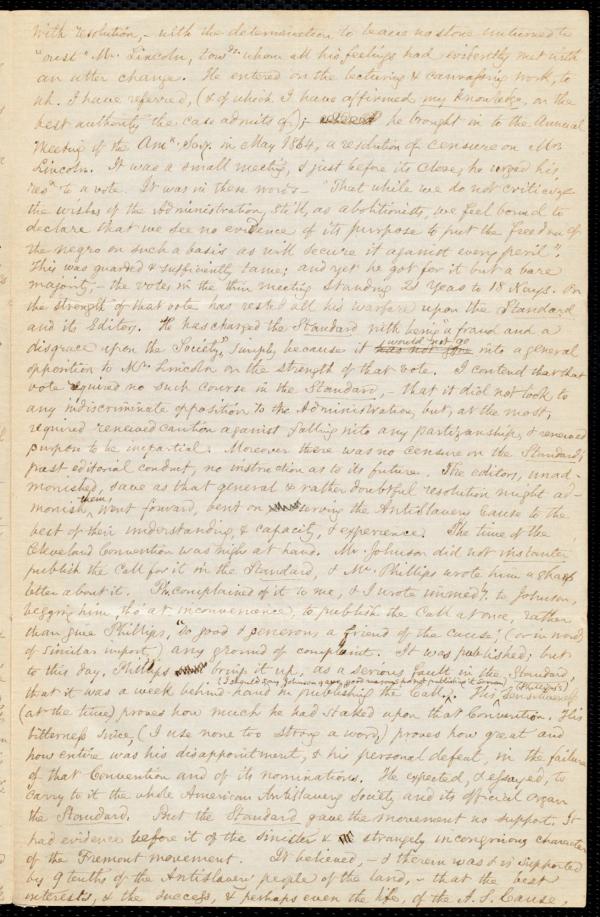 with resolution, - with the determination to leave no stone unturned to
"oust" Mr. Lincoln, towds. whom all his feelings had evidently met with
an utter change. He entered on the lecturing & canvassing work, to
wh. I have referred, (& of which I have affirmed my knowledge, on the
best authority the case admits of); - he brought in to the Annual
Meeting of the Amn. Socy. in May 1864, a resolution of censure on Mr.
Lincoln. It was a small meeting, & just before its close, he urged his
resn. to a vote. It was in these words - "That while we do not criticize
the wishes of the administration, still, as abolitionists, we feel bound to
declare that we see no evidence of its purpose to put the freedom of
the negro on such a basis as will secure it against every peril".
This was guarded & sufficiently tame; and yet he got for it but a bare
majority, - the votes in the thin meeting standing 21 Yeas to 18 Nays. On
the strength of that vote has rested all his warfare upon the Standard
and its Editors. He has charged the Standard with being "a fraud and a
disgrace upon the Society," simply because it has not gone would not go into a general
opposition to Mr. Lincoln on the strength of that vote. I contend that that
vote required no such course in the Standard, - that it did not look to
any indiscriminate opposition to the Administration, but, at the most,
required renewed caution against falling into any partizanship, & renewed
purpose to be impartial. Moreover there was no censure on the Standard's
past editorial conduct, no instruction as to its future. The editors, unad-
monished, save as that general & rather doubtful resolution might ad-
monish them, went forward, bent on serving the Antislavery Cause to the
best of their understanding, & capacity, & experience. The time of the
Cleveland Convention was nigh at hand. Mr. Johnson did not instanter
publish the Call for it in the Standard, & Mr. Phillips wrote him a sharp
letter about it. Ph. complained of it to me, & I wrote immedy. to Johnson,
begging him, tho' at inconvenience, to publish the Call at once, rather
than give Phillips, "so good & generous a friend of the cause", (or in words
of similar import,) any ground of complaint. It was published; but
to this day, Phillips bring it up, as a serious fault in the Standard,
that it was a week behind-hand in publishing the Call. (I should say, Johnson gave good reasons for not publishing it sooner.) His (Phillips's) sensitiveness
(at the time) proves how much he had staked upon that Convention. His
bitterness since, (I use none too strong a word,) proves how great and
how entire was his disappointment, & his personal defeat, in the failure
of that Convention and of its nominations. He expected, & essayed, to
carry to it the whole American Antislavery Society and its official organ
the Standard. But the Standard gave the movement no support. It
had evidence before it of the sinister & strangely incongruous character
of the Fremont movement. It believed, - & therein was & is supported
by 9 tenths of the Antislavery people of the land, - that the best
interests, & the success, & perhaps even the life, of the A. S. Cause,